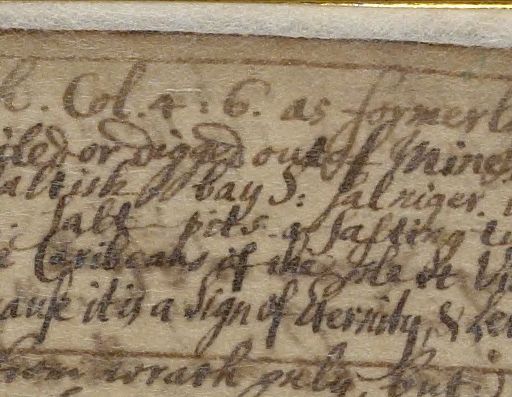 . Col. 4: 6. as formerl
iled or digged out of Mines
altish bay S: sal niger.
: salt pits a salting
Caribeahs if the Isle St Vi
ause it is a Sign of Eternity, &
from wrath but